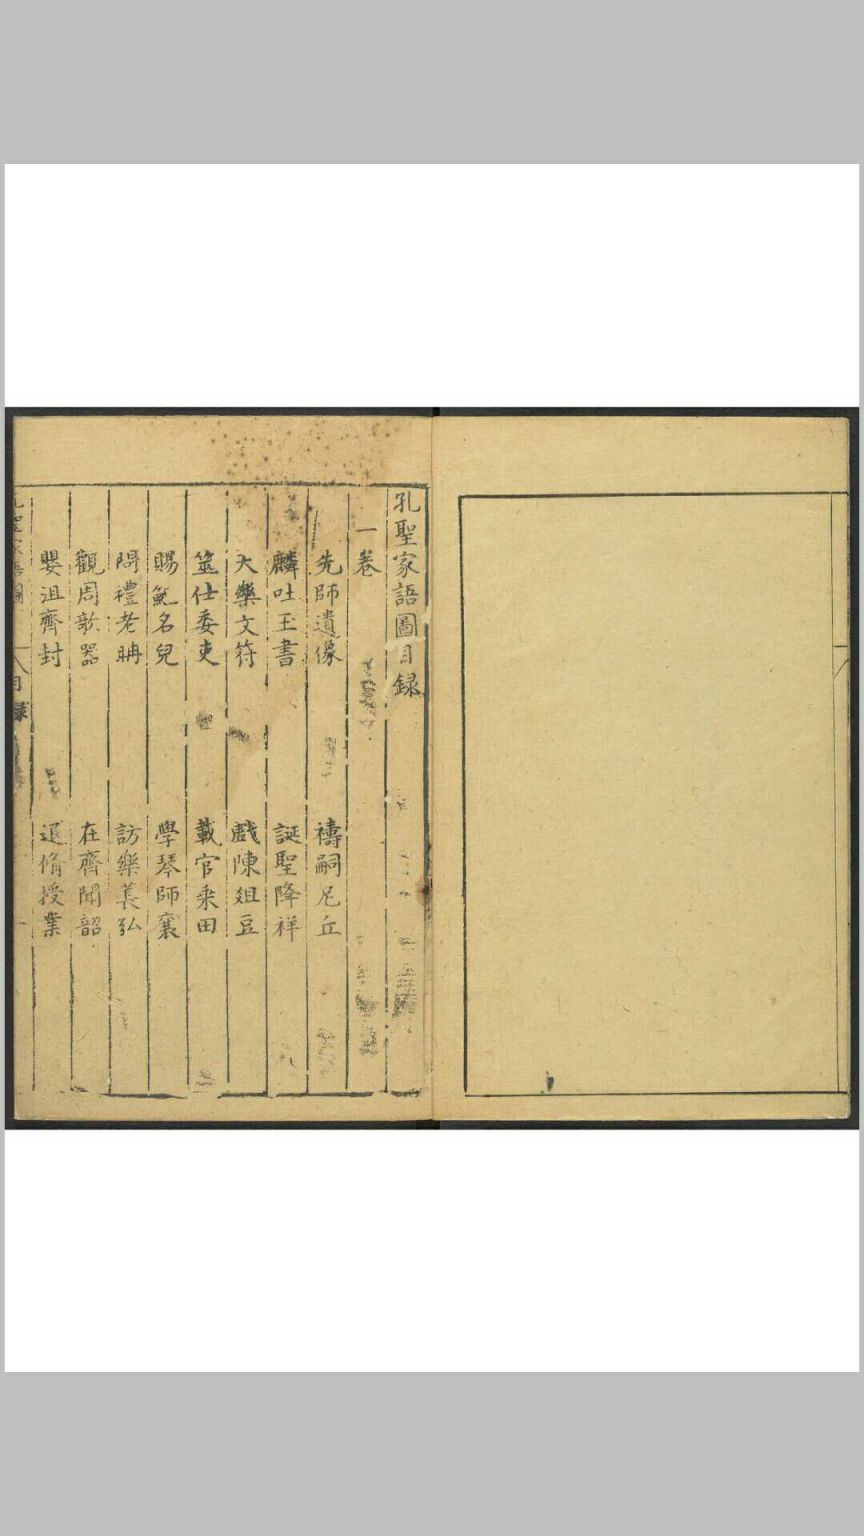 孔聖家語圖目録
一卷
先師遺像　禱嗣尼丘
麟吐玉書　誕聖降祥
天樂文符　戲陳俎豆
筮仕委吏　載官乘田
賜魚名兒　學琴師襄
問禮老聃　訪樂萇弘
觀周欹器　在齊聞韶
嬰沮齊封　退脩授業
孔聖家語圖
目録